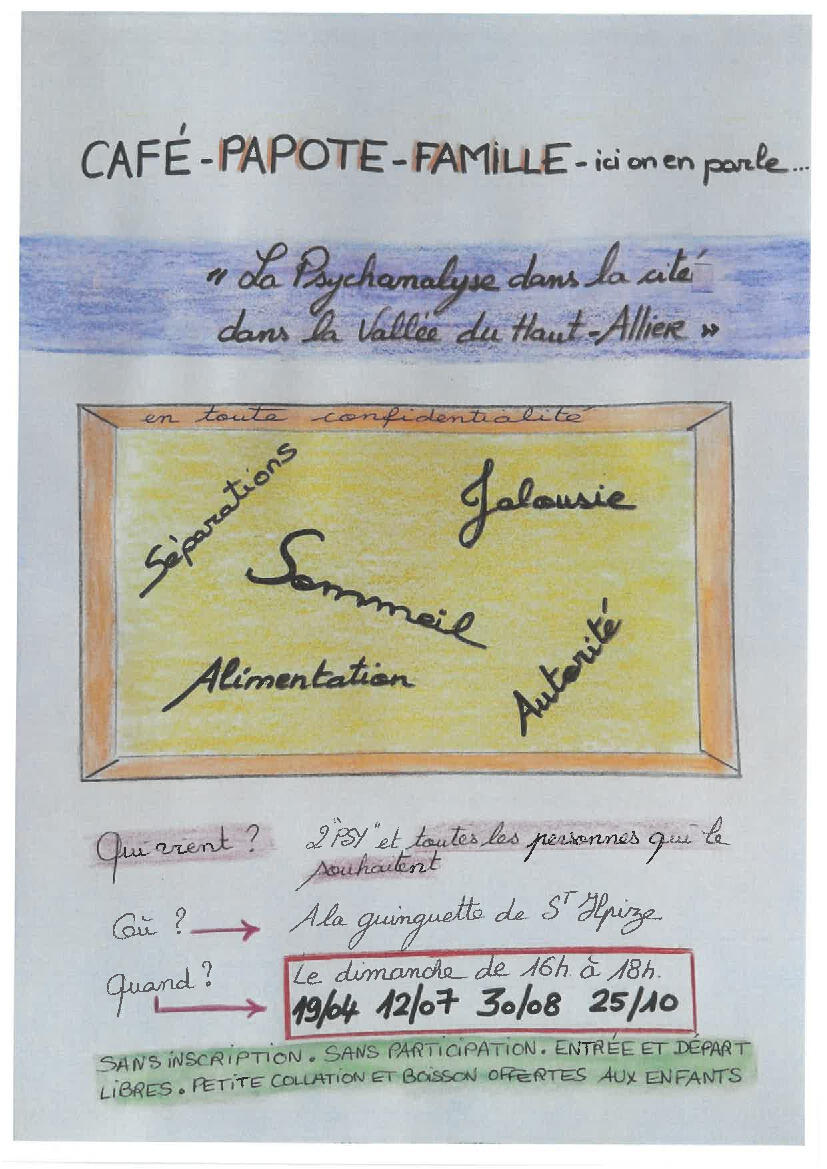 CAFÉ - PAPOTE - FAMILLE - ici on en parle...
" La Psychanalyse dans la cité
dans la Vallée du Haut-Allier »
en toute confidentialité
Séparations
Jalousie
Sommeil
Alimentation
Autorité
Qui vient ?
2 "PSY" et toutes les personnes qui le
souhaitent
Où ?
A la guinguette de ST Ilpize
Quand ?
Le dimanche de 16h à 18h.
19/04 12/07 30/08 25/10
SANS INSCRIPTION. SANS PARTICIPATION. ENTRÉE ET DÉPART
LIBRES. PETITE COLLATION ET BOISSON OFFERTES AUX ENFANTS